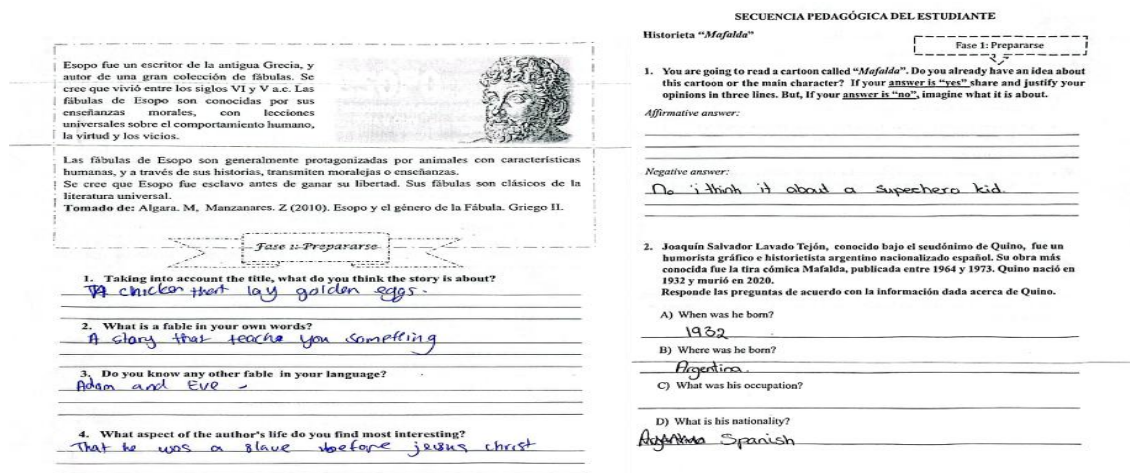 Esopo fue un escritor de la antigua Grecia, y
autor de una gran colección de fábulas. Se
cree que vivió entre los siglos VI y V a.c. Las
fábulas de Esopo son conocidas por sus
enseñanzas morales, con lecciones
universales sobre el comportamiento humano,
la virtud y los vicios.
Las fábulas de Esopo son generalmente protagonizadas por animales con características
humanas, y a través de sus historias, transmiten moralejas o enseñanzas.
Se cree que Esopo fue esclavo antes de ganar su libertad. Sus fábulas son clásicos de la
literatura universal.
Tomado de: Algara. M, Manzanares. Z (2010). Esopo y el género de la Fábula. Griego II.
Fase 1: Prepararse
1. Taking into account the title, what do you think the story is about?
A chicken that lay golden eggs.
2. What is a fable in your own words?
A story that teache you something
3. Do you know any other fable in your language?
Adam and Eve -
4. What aspect of the author's life do you find most interesting?
That he was a slave before jesus christ
SECUENCIA PEDAGÓGICA DEL ESTUDIANTE
Historieta "Mafalda"
Fase 1: Prepararse
1. You are going to read a cartoon called "Mafalda". Do you already have an idea about
this cartoon or the main character? If your answer is "yes" share and justify your
opinions in three lines. But, If your answer is "no", imagine what it is about.
Affirmative answer:
Negative answer:
No i think it about a supechero kid.
2. Joaquín Salvador Lavado Tejón, conocido bajo el seudónimo de Quino, fue un
humorista gráfico e historietista argentino nacionalizado español. Su obra más
conocida fue la tira cómica Mafalda, publicada entre 1964 y 1973. Quino nació en
1932 y murió en 2020.
Responde las preguntas de acuerdo con la información dada acerca de Quino.
A) When was he born?
1932
B) Where was he born?
Argentina.
C) What was his occupation?
D) What is his nationality?
Spanish